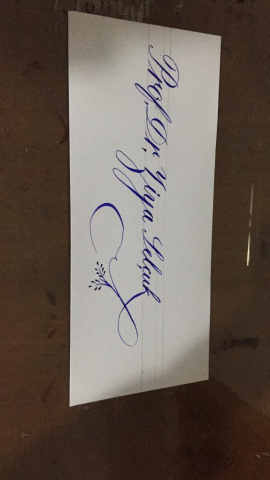 Prof. Dr. Ziya Selçuk